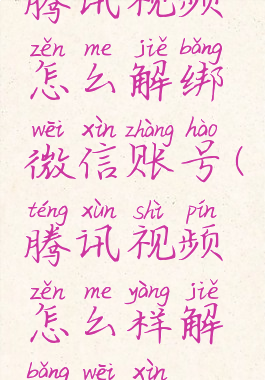 腾讯视频
zěn me jiě bǎng
怎么解绑
wēi xìn zhàng hào
微信账号(
téng xùn shì pín
腾讯视频
zěn me yàng jiě
怎么样解
bǎng wēi xìn